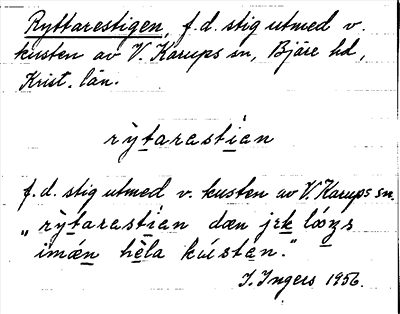 Ryttarestigen, f.d. stig utmed v.
kusten av V. Karups sn, Bjäre hd,
Krist. län.
rỳtarastían
f.d. stig utmed v. kusten av V. Karups sn.
„rỳtarastían dæn jɪk
imǽn hèla kústan."
I. Ingers 1956.